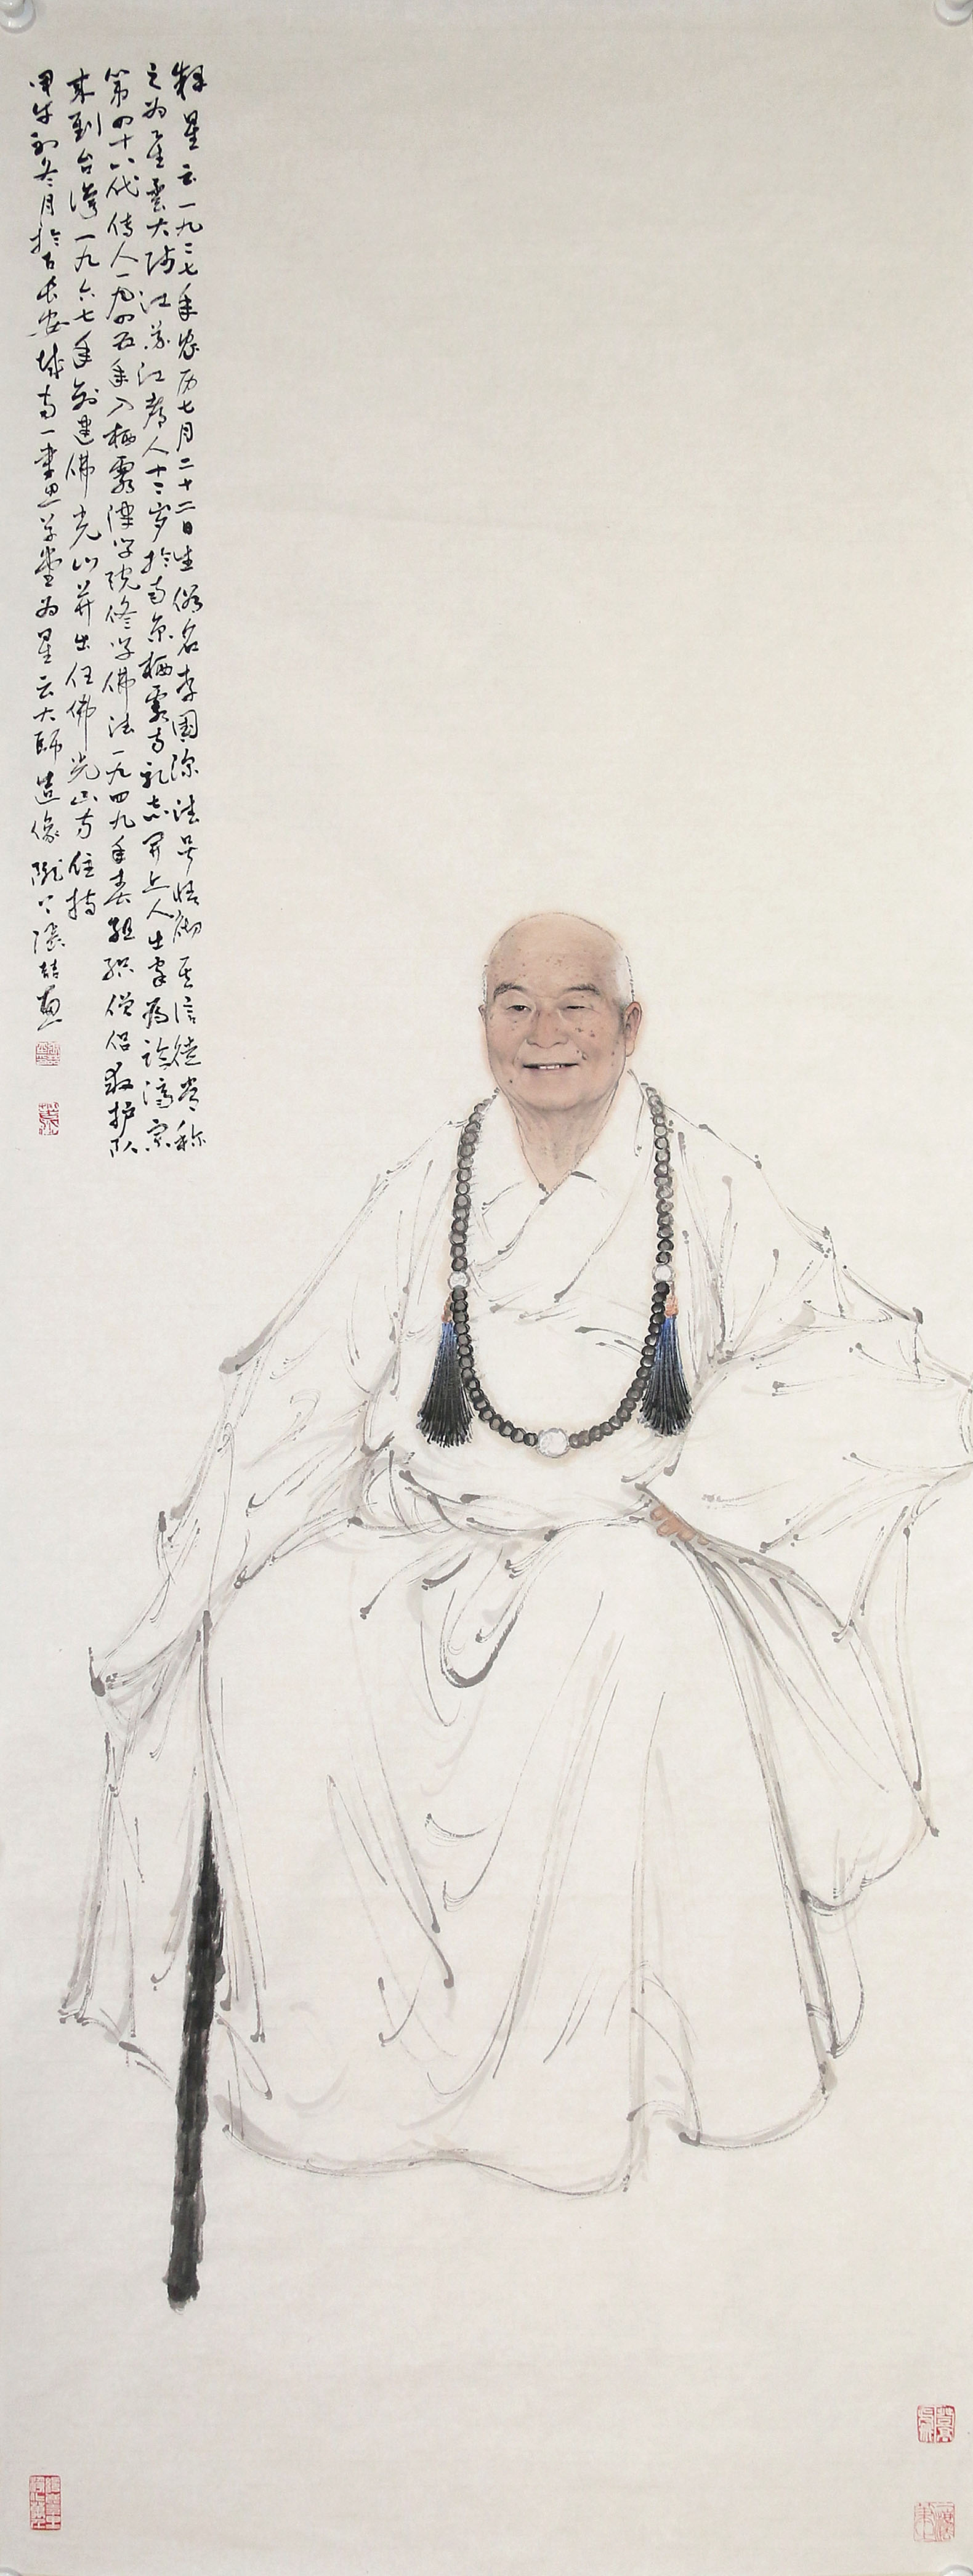 释星云一九二七年农历七月二十二日生俗名李国深法号悟彻其信徒常称
之为星雲大师江苏江都人十二岁於南京栖霞寺礼志開上人出家為临濟宗
第四十八代传人一九四五年入栖霞律学院修学佛法一九四九年春组织僧侣救护队
来到台灣一九六七年創建佛光山并出任佛光山寺住持
甲午初冬月於古长安城南一畫思草堂为星云大师造像陇人張喆畫